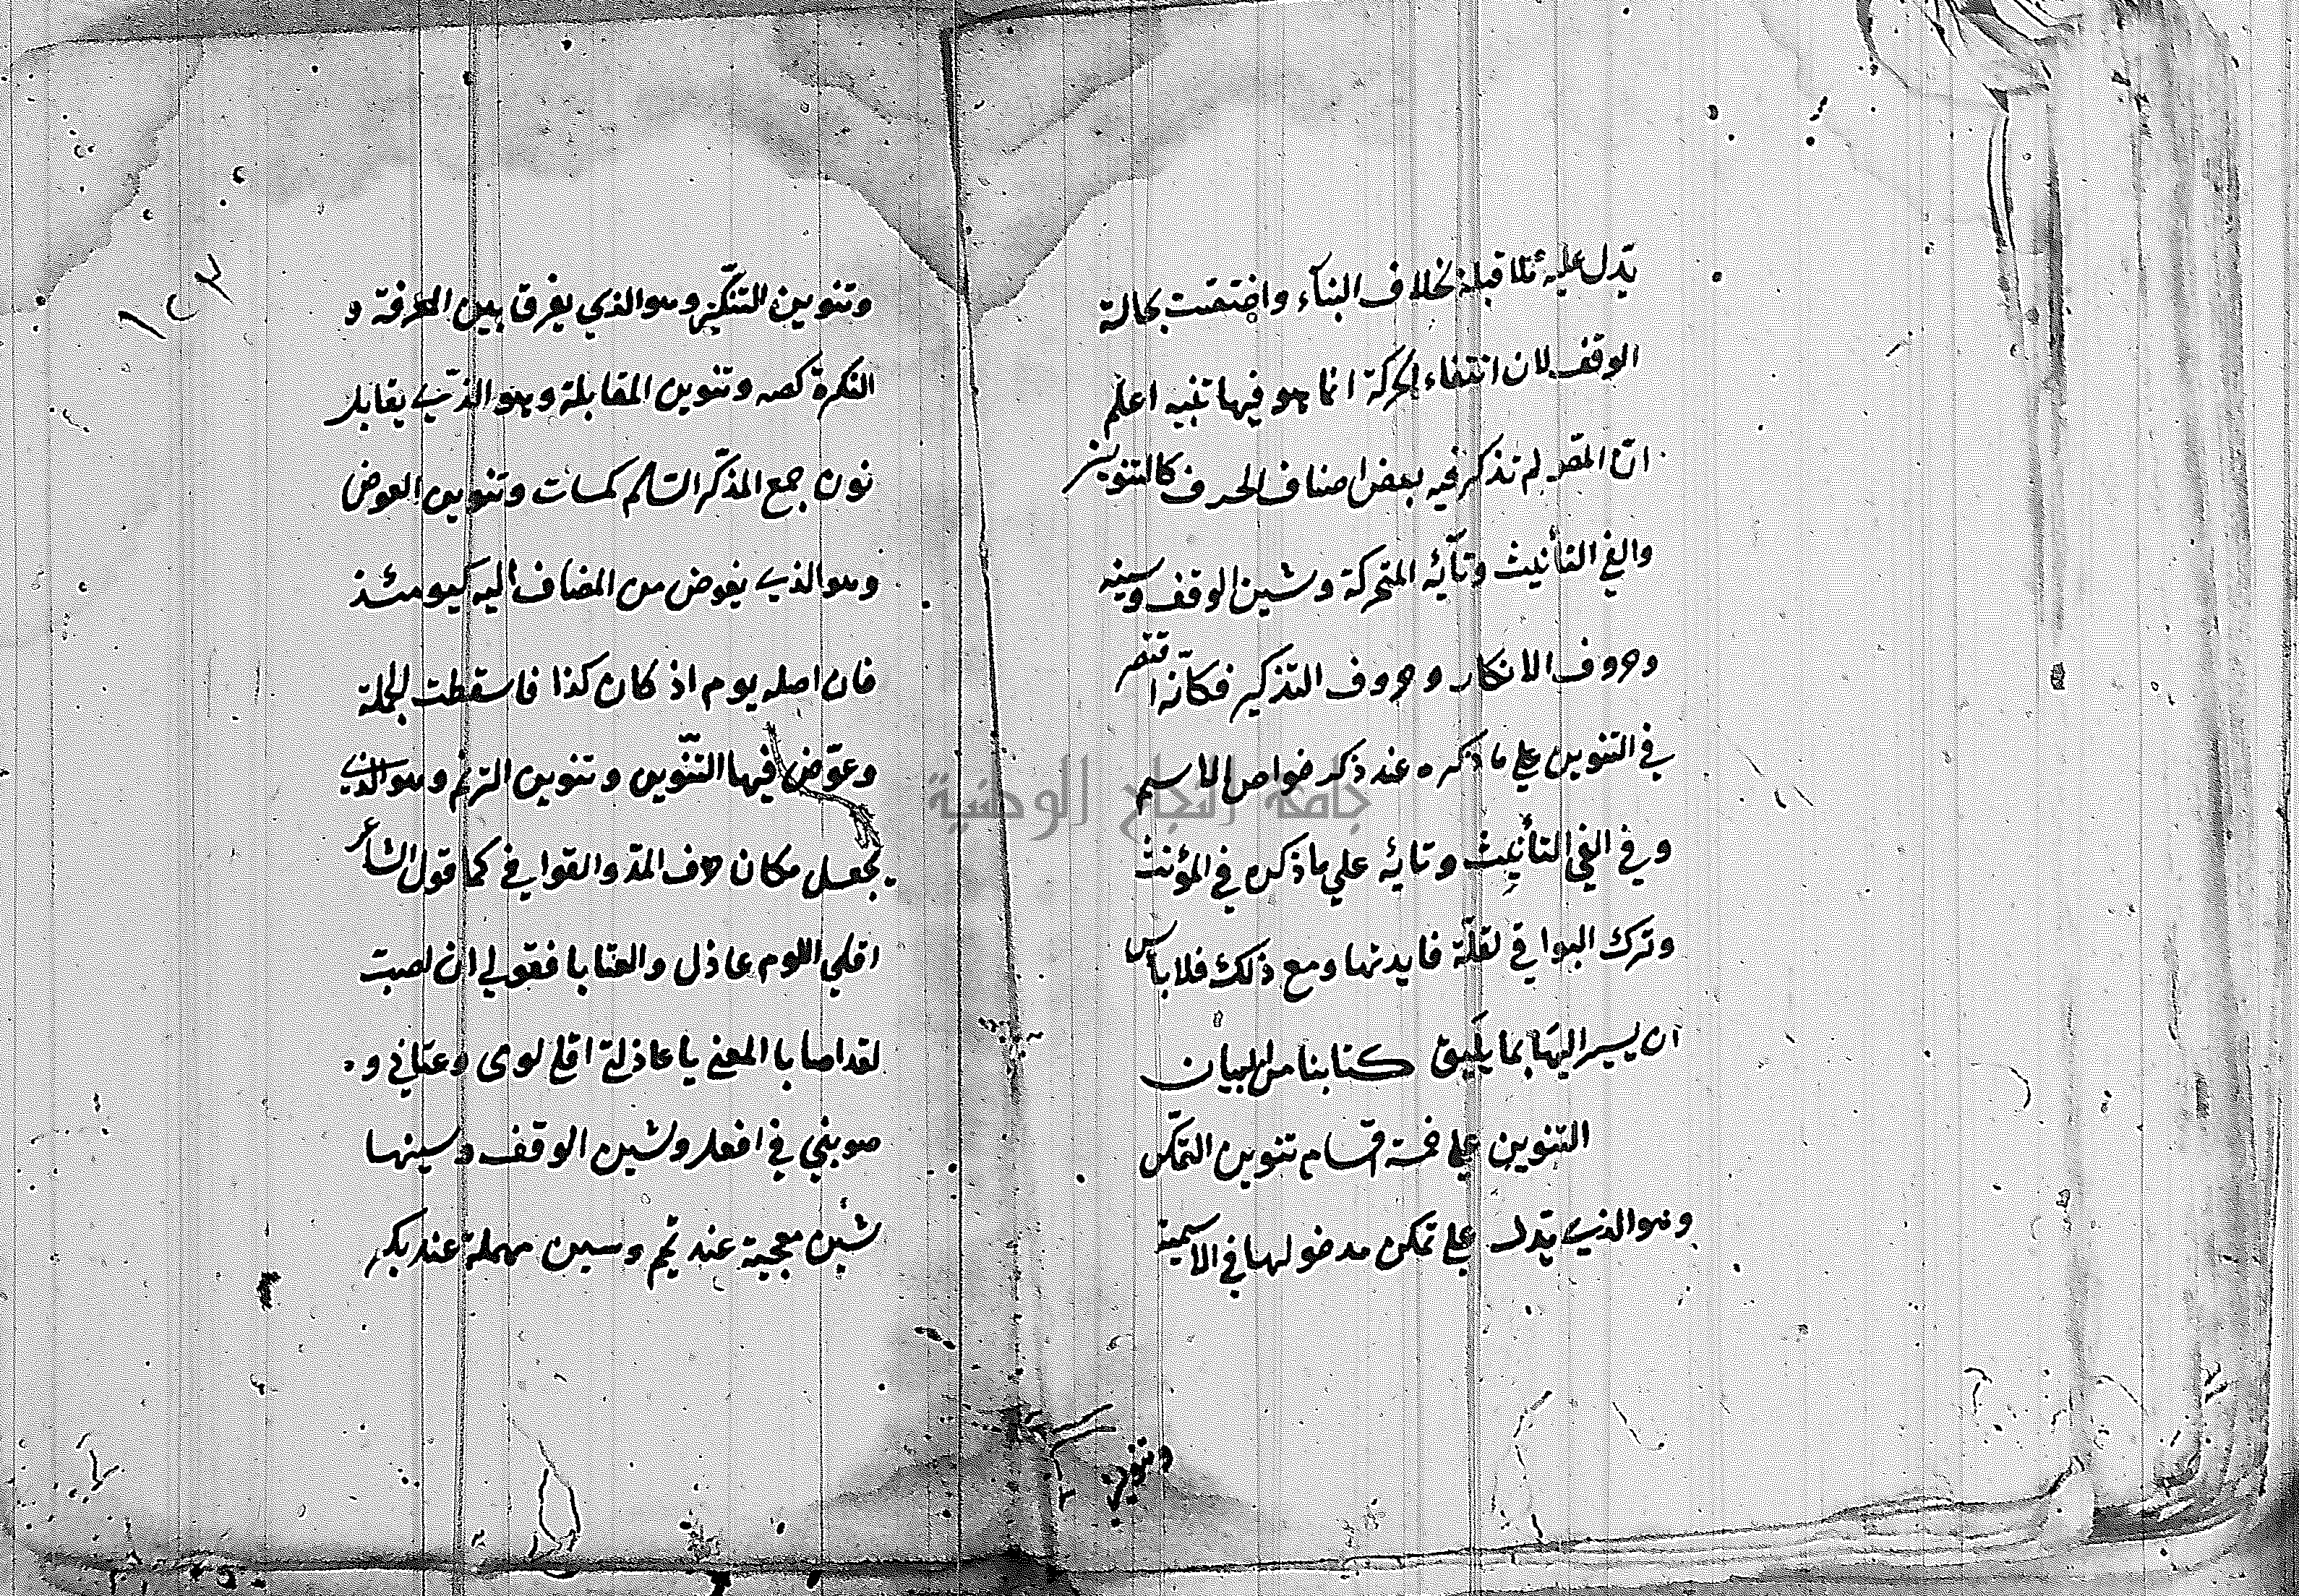 يدل عليه ما قبله بخلاف البناء واختصت بحالة
الوقف لان انتفاء الحركة انما هو فيها تنبيه اعلم
ان المصـ لم تذكر فيه بعض اصناف الحرف كالتنوين
والفي التأنيث وتائه المتحركة وشين الوقف وسينه
وحروف الانكار وحروف التذكير فكانّه اقتصر
في التنوين علي ما ذكره عند ذكر خواص الاسم
وفي الفي التأنيث وتائه علي ما ذكره في المؤنث
وترك البواقي لقلّة فايدتها ومع ذلك فلا بأس
ان يسير اليها بما يليق كتابنا من البيان
التنوين علي خمسة اقسام تنوين التمكن
وهو الذي يدل علي تمكن مدخولها في الاسمية
وتنوين
وتنوين التنكّير وهو الذي يفرق بين المعرفة و
النكرة كصه وتنوين المقابلة وهو الذي يقابل
نون جمع المذكّر السّالم كمسات وتنوين العوض
وهو الذي يعوض من المضاف اليه كيومئذ
فان اصله يوم اذ كان كذا فاسقطت الجملة
وعوّض فيها التنّوين وتنوين الترنم وهو الذي
يجعل مكان حرف المدّ والقوافي كما قول الشاعر
اقلي اللوم عاذل والعتابا فقولي ان اصبت
لقد اصابا المعني يا عاذلة اقلي لومى وعتابي و
صوبني في افعل وشين الوقف وسينها
شين معجمة عند تميم وسين مهملة عند بكر
جامعة النجاح الوطنية